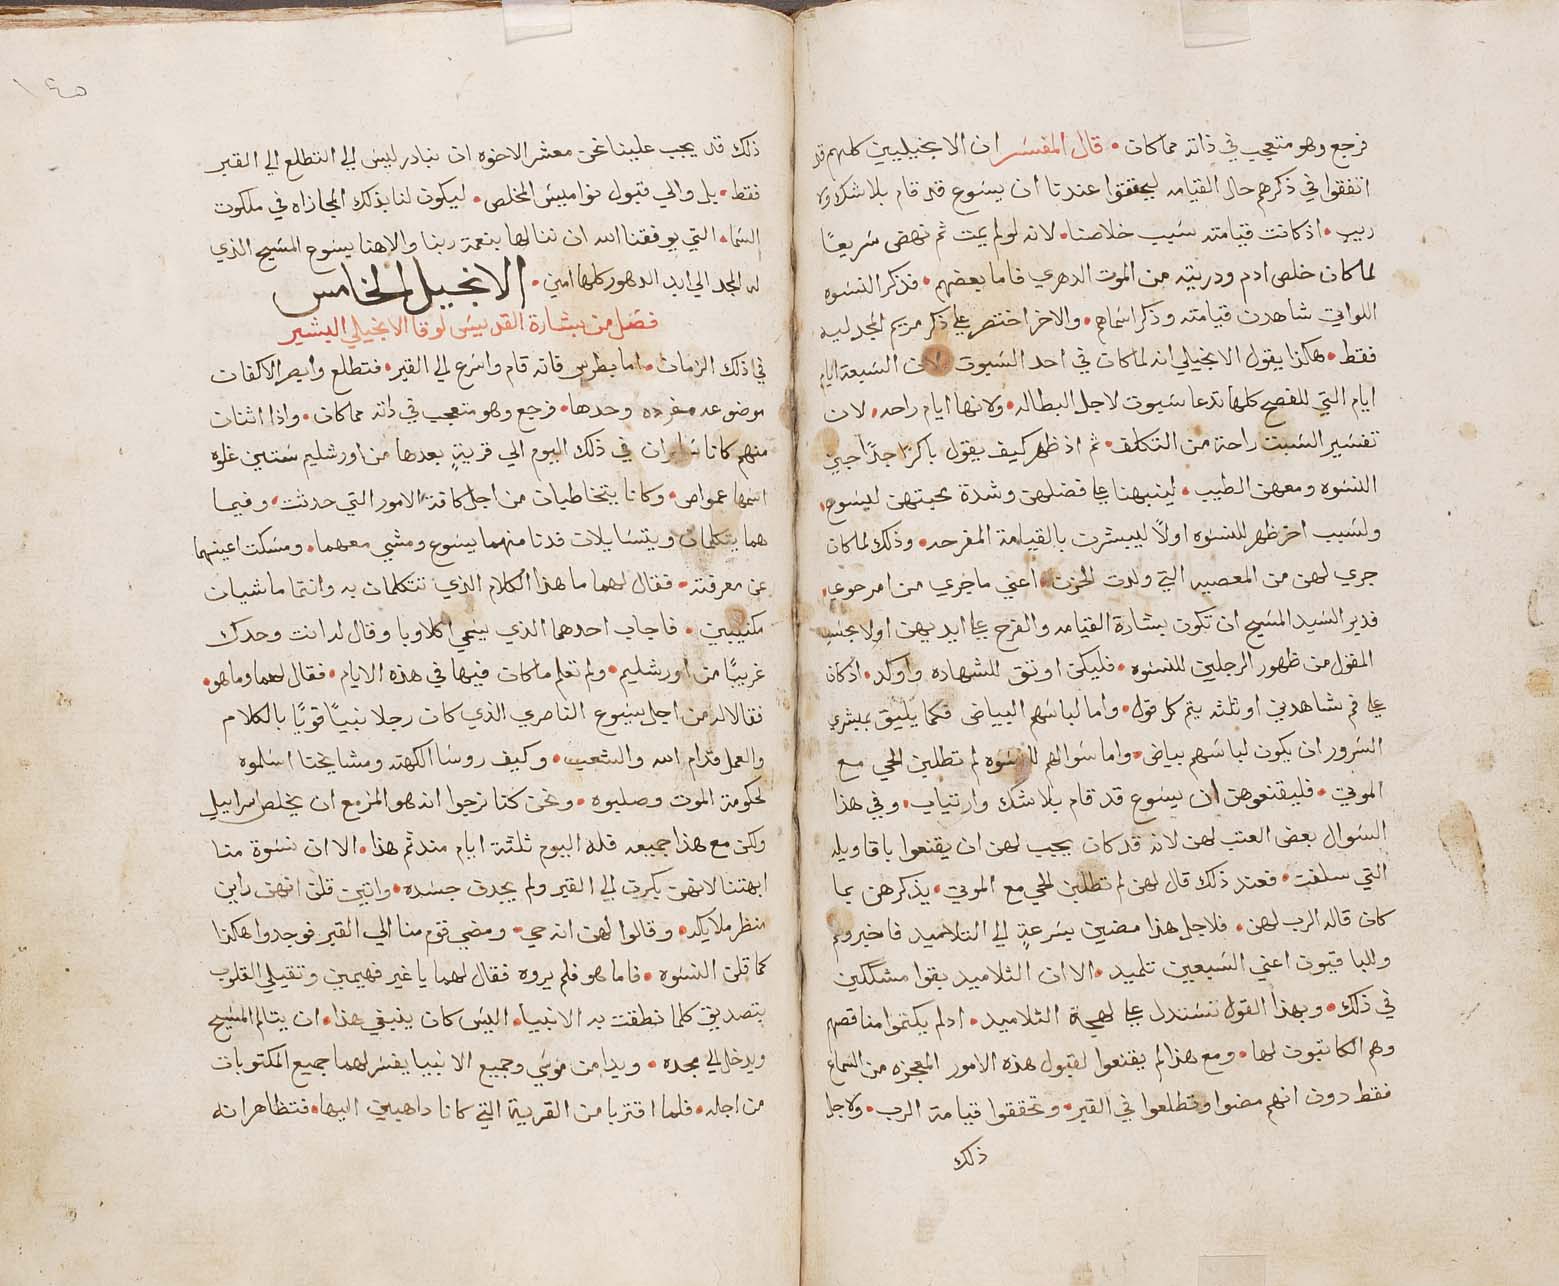 فرجع وهو متعجب في ذاته مما كان • قال المفسر ان الانجيليين كلهم قد
اتفقوا في ذكرهم حال القيامه ليحققوا عندنا ان يسوع قد قام بلا شك ولا
ريب • اذ كانت قيامته سبب خلاصنا • لانه لو لم يمت ثم نهض سريعًا
لما كان خلص ادم وذريته من الموت الدهري فاما بعضهم • فذكر النسوه
اللواتي شاهدن قيامته وذكر اسماهم • والاخر اختصر علي ذكر مريم المجدليه
فقط • هكذا يقول الانجيلي انه لما كان في احد السبوت لان السبعة ايام
ايام التي للفصح كلها تدعا سبوت لاجل البطاله • ولانها ايام راحه • لان
تفسير السبت راحة من التكلف • ثم اذ ظهر كيف يقول باكرًا جدًا جين
النسوه ومعهن الطيب • لينبهنا علي فضلهن وشدة محبتهن ليسوع •
ولسبب اخر ظهر للنسوه اولًا ليبشرن بالقيامة المفرحه • وذلك لما كان
جري لهن من المعصيه التي ولدت الحزن • اعني ما جري من امر حوي •
فدبر السيد المسيح ان تكون بشارة القيامه والفرح علي ايديهن اولا بجنس
المقول من ظهور الرجلين للنسوه • فليكن اوثق للشهاده واوكد • اذ كان
علي فم شاهدين او ثلثه يتم كل قول • واما لباسهم البياض فكما يليق بمبشري
السرور ان يكون لباسهم بياض • واما سوالهم للنسوه لم تطلبن الحي مع
الموتي • فليقنعوهن ان يسوع قد قام بلا شك وارتياب • وفي هذا
السوال بعض العتب لهن لانه قد كان يجب لهن ان يقنعوا باقاويله
التي سلفت • فعند ذلك قال لهن لم تطلبن الحي مع الموتي • يذكرهن بما
كان قاله الرب لهن • فلاجل هذا مضين بسرعةٍ الي التلاميد فاخبروهم
وللباقيون اعني السبعين تلميد • الا ان التلاميد بقوا مشككين
في ذلك • وبهذا القول نستدل علي لهجة التلاميد • اذ لم يكتموا مناقصهم
وهم الكاتبون لها • ومع هذا لم يقنعوا لقبول هذه الامور المعجزه من السماع
فقط دون انهم مضوا وتطلعوا في القبر • وتحققوا قيامة الرب • ولاجل
ذلك
ذلك قد يجب علينا نحن معشر الاخوه ان نبادر ليس الي التطلع الي القبر
فقط • بل والي قبول نواميس المخلص • ليكون لنا بذلك المجازاه في ملكوت
السما • التي يوفقنا الله ان ننالها بنعمة ربنا والاهنا يسوع المسيح الذي
له المجد الي ابد الدهور كلها امين • الانجيل الخامس
فصل من بشارة القديس لوقا الانجيلي البشير
في ذلك الزمان • اما بطرس فانه قام واسرع الي القبر • فتطلع وابصر الاكفان
موضوعه مفرده وحدها • فرجع وهو متعجب في ذاته مما كان • واذا اثنان
منهم كانا سايران في ذلك اليوم الي قريةٍ بعدها من اورشليم ستين غلوه
اسمها عمواص • وكانا يتخاطبان من اجل كافة الامور التي حدثت • وفيما
هما يتكلمان ويتسايلان فدنا منهما يسوع ومشي معهما • ومسكت اعينهما
عن معرفته • فقال لهما ما هذا الكلام الذي تتكلمان به وانتما ماشيان
مكتيبين • فاجاب احدهما الذي يسمي اكلاوبا وقال له انت وحدك
غريبًا من اورشليم • ولم تعلم ما كان فيها في هذه الايام • فقال لهما وما هو •
فقالا له من اجل يسوع الناصري الذي كان رجلا نبيًا قويًا بالكلام
والعمل قدام الله والشعب • وكيف روسا الكهنه ومشايخنا اسلموه
لحكومة الموت وصلبوه • ونحن كنا نرجوا انه هو المزمع ان يخلص اسراييل
ولكن مع هذا جميعه فله اليوم ثلثة ايام مند ثم هذا • الا ان نسوة منا
ابهتنا لانهن بكرن الي القبر ولم يجدن جسده • واتين قلن انهن راين
منظر ملايكه • وقالوا لهن انه حي • ومضي قوم منا الي القبر فوجدوا هكذا
كما قلن النسوه • فاما هو فلم يروه فقال لهما يا غير فهيمين وثقيلي القلوب
بتصديق كلما نطقت به الانبيا • اليس كان ينبغي هذا • ان يتالم المسيح
ويدخل الي مجده • وبدا من موسي وجميع الانبيا يفسر لهما جميع المكتوبات
من اجله • فلما اقتربا من القرية التي كانا داهبين اليها • فتظاهر انه